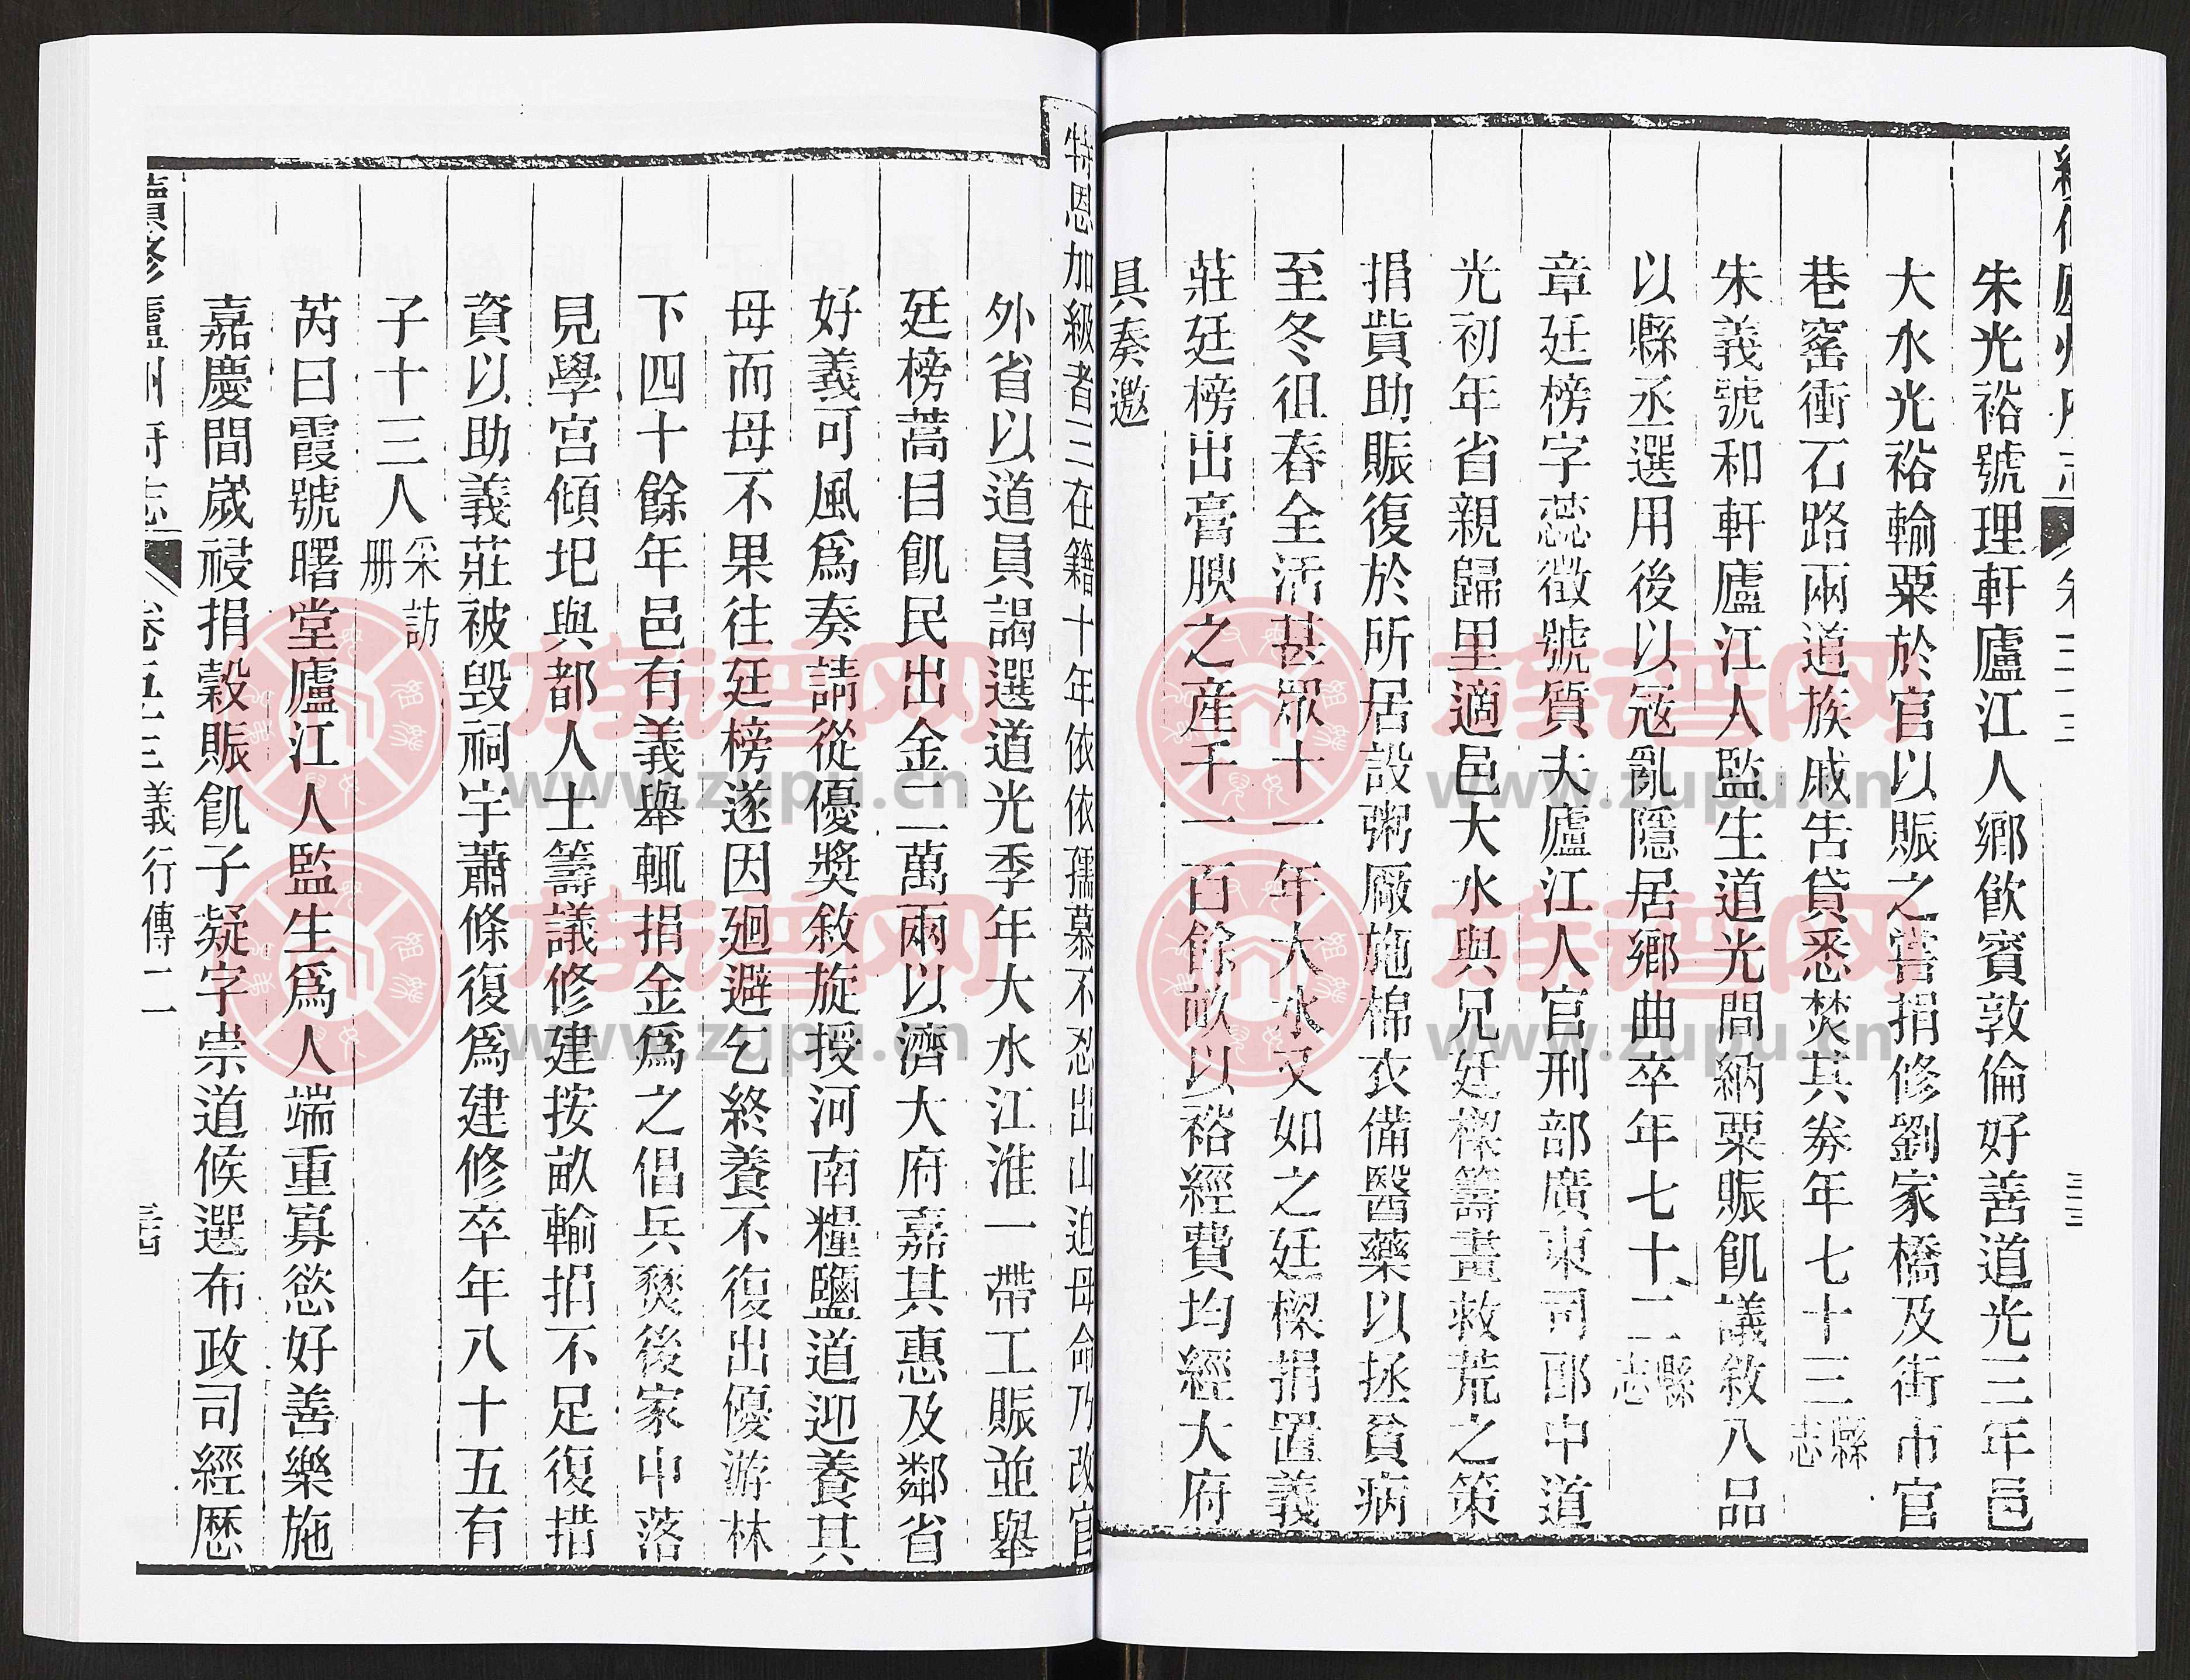 朱光裕號理軒廬江人鄉飲賓敦倫好善道光三年邑
大水光裕輸粟於官以賑之嘗捐修劉家橋及街市官
巷窰衝石路兩道族戚告貸悉焚其券年七十三縣志
朱義號和軒廬江人監生道光間納粟賑飢議敘八品
以縣丞選用後以寇亂隱居鄉曲卒年七十二縣志
章廷榜字蕊徵號質夫廬江人官刑部廣東司郎中道
光初年省親歸里適邑大水與兄廷樑籌畫救荒之策
捐貲助賑復於所居設粥廠施棉衣備醫藥以拯貧病
至冬徂春全活甚眾十一年大水又如之廷樑捐置義
莊廷榜出膏腴之產千一百餘畝以裕經費均經大府
具奏邀
特恩加級者三在籍十年依依孺慕不忍出山迫母命乃改官
外省以道員謁選道光季年大水江淮一帶工賑並舉
廷榜蒿目飢民出金二萬兩以濟大府嘉其惠及鄰省
好義可風爲奏請從優獎敘旋授河南糧鹽道迎養其
母而母不果往廷榜遂因廻避乞終養不復出優游林
下四十餘年邑有義舉輒捐金爲之倡兵燹後家中落
見學宮傾圮與都人士籌議修建按畝輸捐不足復措
資以助義莊被毁祠宇蕭條復爲建修卒年八十五有
子十三人采訪册
芮曰霞號曙堂廬江人監生爲人端重寡慾好善樂施
嘉慶間嵗祲捐穀賑飢子疑字崇道候選布政司經歷
續修廬州府志
義行傳二
www.zupu.cn
族谱网
www.zupu.cn
族谱网
www.zupu.cn
族谱网
www.zupu.cn
族谱网